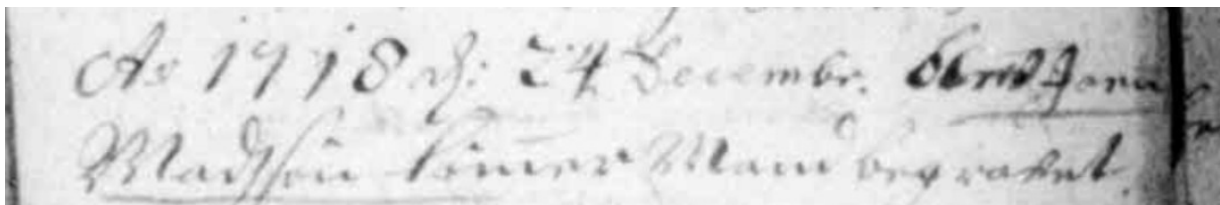 Ao 1718 d: 24 Decembr. blev Jens
Madssøn Tømer Mand begravet.